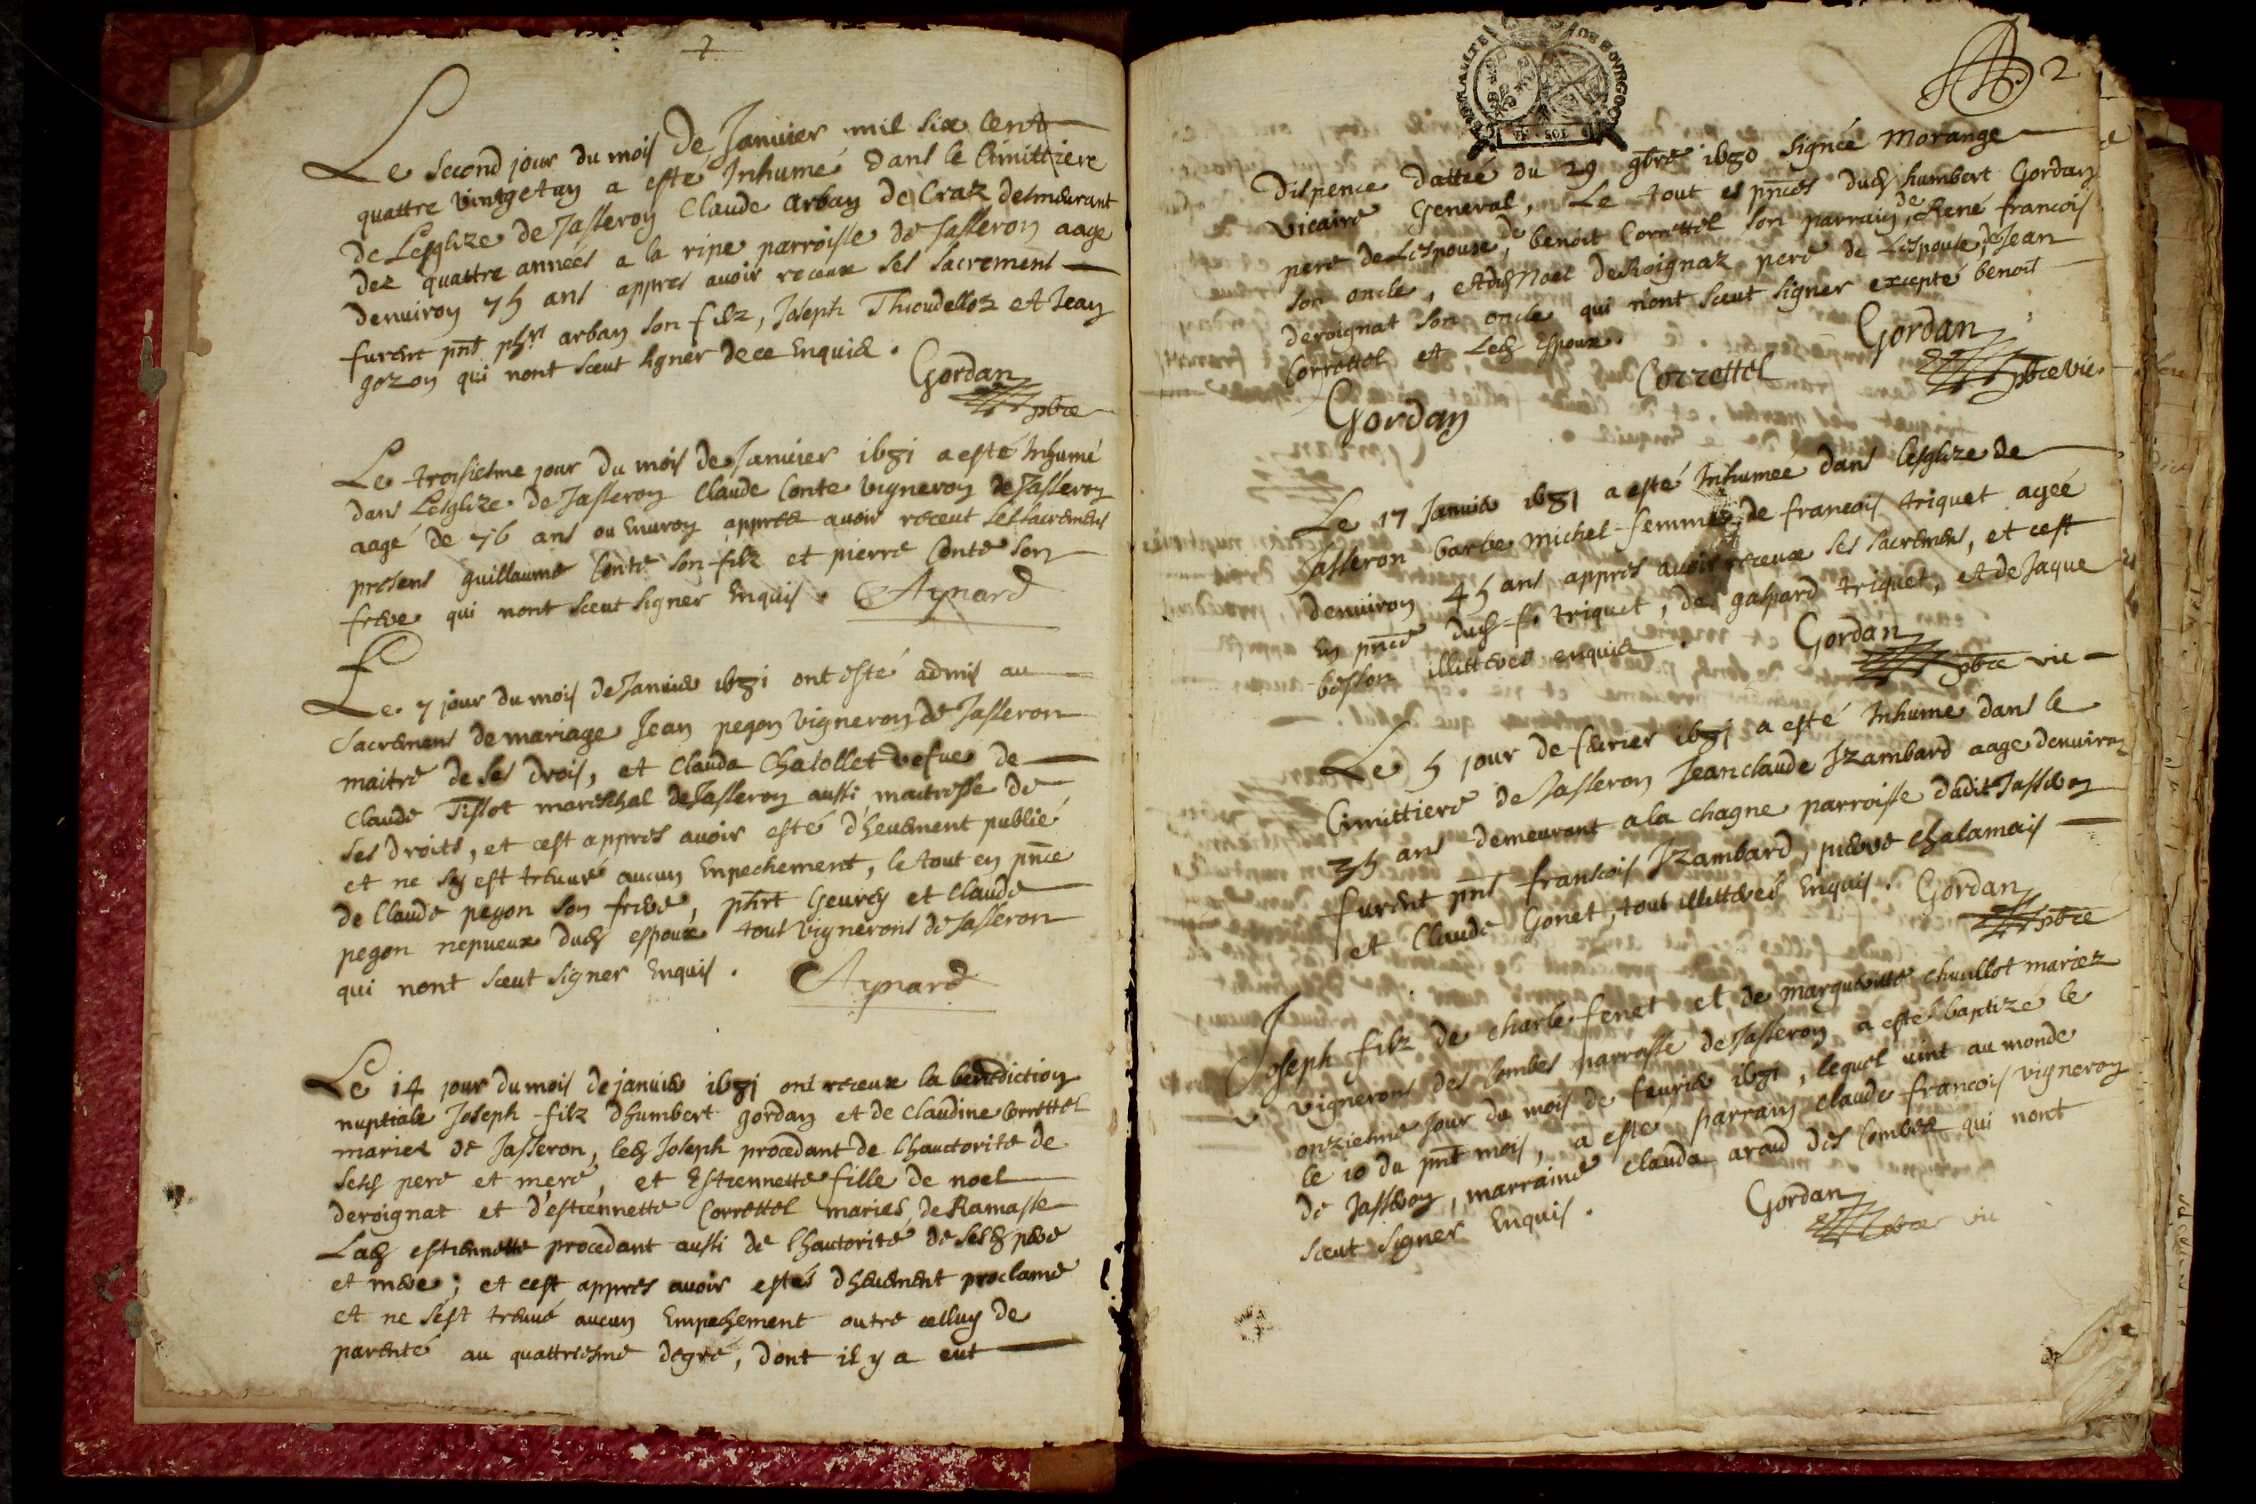 Le second jour du mois De Janvier mil six cent
quattre vintgetun a esté Inhumé dans le Cimittiere
de Lesglize de Jasseron Claude arban de Craz demeurant
dez quattre années a la ripe parroisse de Jasseron aage
denuiron 75 ans appres avoir receux ses sacremens
furent pnt phrt arban son filz, Joseph Thioudelloz et Jean
gozon qui nont sceut signer de ce Enquis.
Gordan
pbre
Le troisiesme jour du mois de Januier 1681 a esté Inhumé
dans Lesglize de Jasseron Claude Conte vigneron de Jasseron
aagé de 76 ans ou Enuiron appres auoir receut ses sacremens
presens guillaume Conte son filz et pierre Conte son
frere qui nont sceut signer Enquis. Aynard
Le 7 jour du mois de Januier 1681 ont esté admis au
Sacremens de mariage Jean pegon vigneron de Jasseron
maitre de ses drois, et Clauda Chatollet vefue de
Claude Tissot mareschal de Jasseron aussi maitresse de
ses droits, et cest appres avoir esté dheuement publié
et ne sy est treuué aucun Enpechement, le tout en pnce
de Claude pegon son frere, phrt Geurey et Claude
pegon nepueux dudt espoux tout vignerons de Jasseron
qui nont sceut signer Enquis. Aynard
Le 14 jour du mois de januier 1681 ont receux la benediction
nuptiale Joseph filz dhumbert gordan et de Claudine Correttel
mariez de Jasseron, ledt Joseph procedant de Lhauctorité de
sesdt pere et mere, et Estiennette fille de noel
deroignat et d'estiennette Correttel mariés de Ramasse
Ladt estiennette procedant aussi de lhautorité de sesdt pere
et mere; et cest appres avoir estés dheuement proclame
et ne sést treuué aucun Empechement outre celluy de
parenté au quattriesme degré, dont il y a eut
2
Dispence dattée du 29 9bre 1680 signée Morange
Vicaire General, Le tout es pnces dudt humbert Gordan
pere de Lespouse, de benoit Correttel son parrain, de René francois
son oncle, et dudt Noel de Roignaz pere de Lespouse, de Jean
deroignat son oncle qui nont sceut signer excepté benoit
Correttel et Ledt Espoux.
Gordan
Correttel
Gordan
pbre vic.
Le 17 Januier 1681 a esté Inhumée dans lesglize de
Jasseron barbe michel femme de francois triquet agée
denuiron 45 ans appres avoir receux ses sacremens, et cest
En pnce dudt f. triquet, de gaspard triquet, et de Jaque
besson illitterés enquis.
Gordan
pbre vic
Le 5 jour de feurier 1681 a esté Inhume dans le
Cimittiere de Jasseron Jeanclaude Izambard aage denuiron
35 ans demeurant a la chagne parroisse dudit Jasseron
furent pnt francois Izambard, pierre chalamais
et Claude Gonet, tout illitterés Enquis.
Gordan
pbre
Joseph filz de charle fenet et de marguerite chuillot mariez
vignerons des Combes parroisse de Jasseron a esté baptizé le
onziesme Jour du mois de feurier 1681, lequel vint au monde
le 10 du pnt mois, a esté parrain claude francois vigneron
de Jasseron, marraine clauda araud des Combes qui nont
sceut signer Enquis.
Gordan
pbre vic